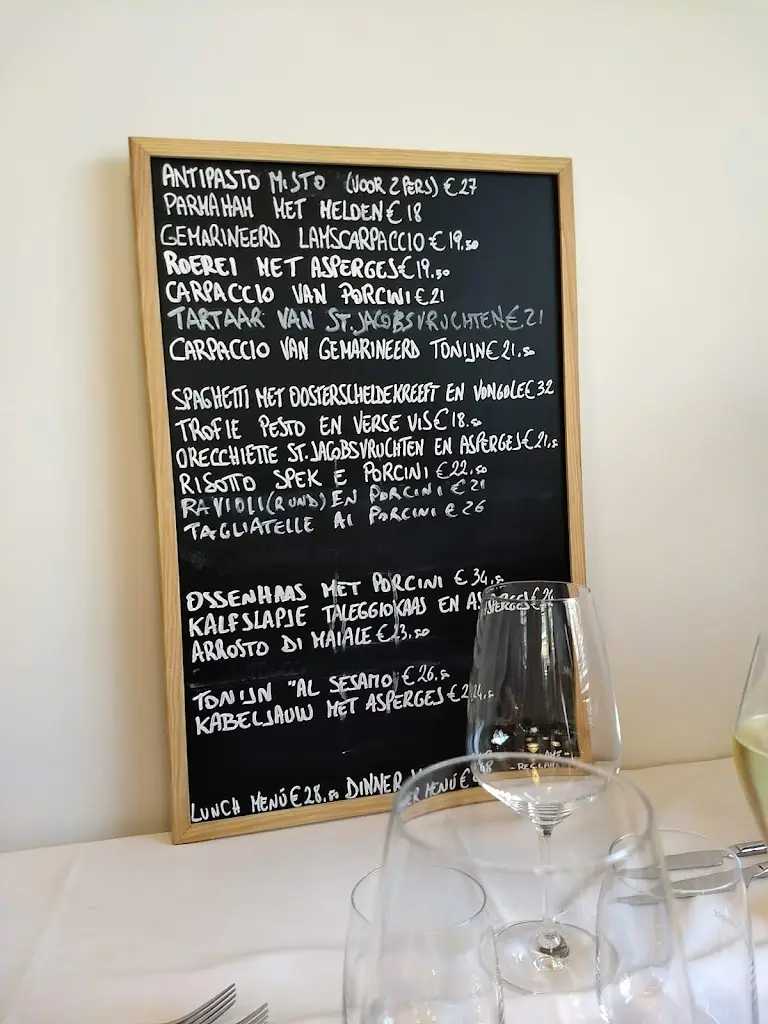 ANTIPASTO MISTO (VOOR 2 PERS) € 27
PARMAHAM MET MELOEN € 18
GEMARINEERD LAMSCARPACCIO € 19.50
ROEREI MET ASPERGES € 19.50
CARPACCIO VAN PORCINI € 21
TARTAAR VAN ST.JACOBSVRUCHTEN € 21
CARPACCIO VAN GEMARINEERD TONIJN € 21.50
SPAGHETTI MET OOSTERSCHELDEKREEFT EN VONGOLE € 32
TROFIE PESTO EN VERSE VIS € 18.50
ORECCHIETTE ST.JACOBSVRUCHTEN EN ASPERGES € 21.5
RISOTTO SPEK E PORCINI € 22.50
RAVIOLI (ROND) EN PORCINI € 21
TAGLIATELLE AI PORCINI € 26
OSSENHAAS MET PORCINI € 34.50
KALFSLAPJE TALEGGIOKAAS EN ASPERGES
ARROSTO DI MAIALE € 23.50
TONIJN "AL SESAMO" € 26.50
KABELJAUW MET ASPERGES € 24.50
LUNCH MENÚ € 28.50 DINNER MENÚ €